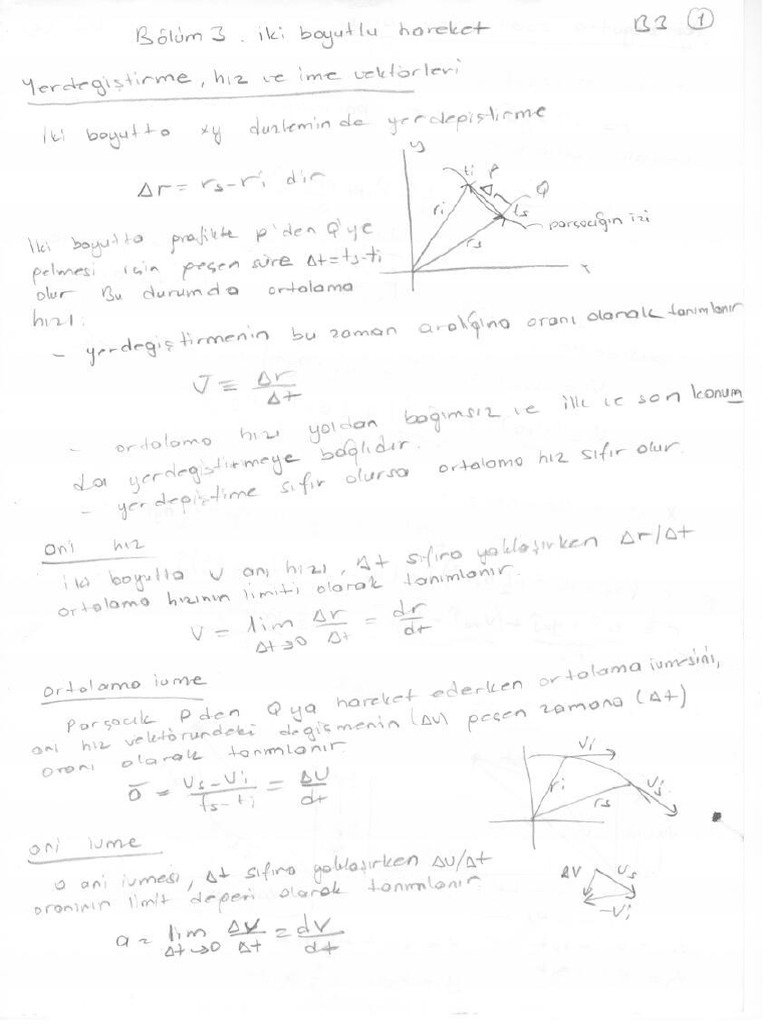 B3 ①
Bölüm 3. iki boyutlu hareket
Yerdegiştirme, hız ve ime vektörleri
iki boyutta xy duzleminde yerdepiştirme
Δr = rs-ri dir
y
ti P
Q
ri
ts
rs
parçacığın izi
x
İki boyutta prafikte p'den Q'ye
pelmesi için peçen süre Δt=ts-ti
olur Bu durumda ortalama
hızı:
- yerdegiştirmenin bu zaman aralığına oranı olarak tanımlanır
V ≡ Δr/Δt
- ortalama hızı yoldan bağımsız ve ilk ve son konum
da yerdegiştirmeye bağlıdır.
- yerdepiştime sıfır olursa ortalama hız sıfır olur.
ani hız
iki boyutta v ani hızı, Δt sıfıra yaklaşırken Δr/Δt
ortalama hızının limiti olarak tanımlanır.
V = lim Δt→0 Δr/Δt = dr/dt
ortalama ivme
Parçacık P den Q ya hareket ederken ortalama ivmesini,
ani hız vektöründeki değişmenin (ΔV) peçen zamana (Δt)
oranı olarak tanımlanır.
ā = Vs-Vi/ts-ti = ΔV/dt
Vi
ri
rs
Vs
ani ivme
a ani ivmesi, Δt sıfıra yaklaşırken ΔV/Δt
oranının limit deperi olarak tanımlanır
ΔV
Vs
-Vi
a = lim Δt→0 ΔV/Δt = dV/dt